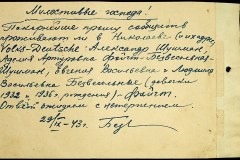 Милостивые господа!
Покорнейше прошу сообщить
проживают ли в Николаеве
Volks-Deutsche Александр Шушман,
Адель Артуровна Фейст-Безвесильная-
Шушман, Евгения Васильевна и Людмила
Васильевна Безвесильные (девочки
1932 и 1936 г. рождения) - Фейст.
Ответ ожидаем с нетерпением.
29/IX-43г.